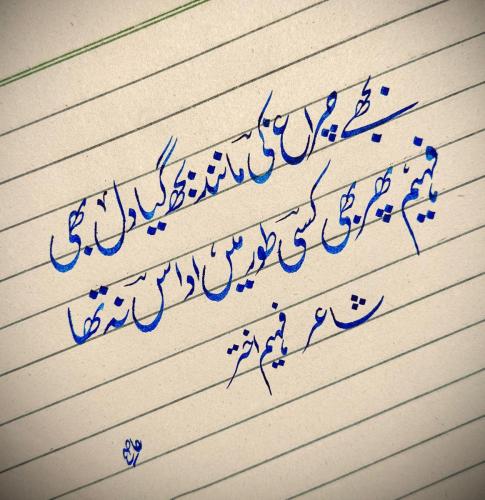 بجھے چراغ کی مانند بجھ گیا دل بھی
فہیم پھر بھی کسی طور میں اداس نہ تھا
شاعر فہیم اختر